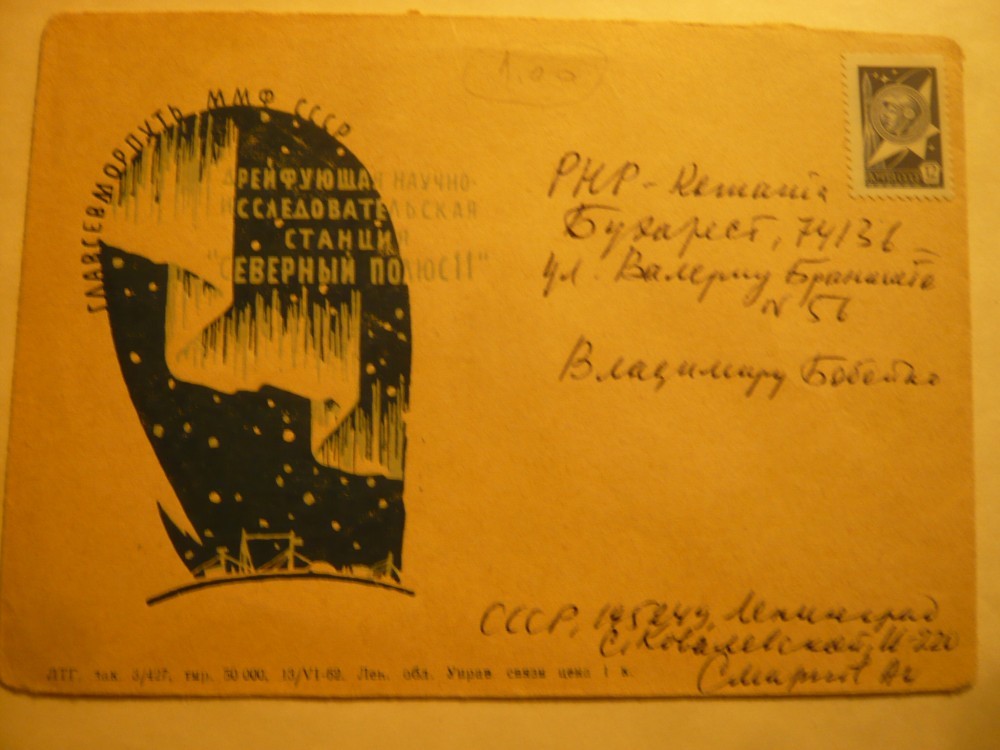 1.00
ГЛАВСЕВМОРПУТЬ ММФ СССР
ДРЕЙФУЮЩАЯ НАУЧНО-
ИССЛЕДОВАТЕЛЬСКАЯ
СТАНЦИЯ
"СЕВЕРНЫЙ ПОЛЮС 11"
12
РНР - Romania
Бухарест, 74136
ул. Валериу Браниште
N 56
Владимиру Бобейко
СССР, 195249, Ленинград
С. Ковалевской,
ЛТГ. зак. 3/427, тир. 50 000, 13/VI-62. Лен. обл. Управ связи цена 1 к.